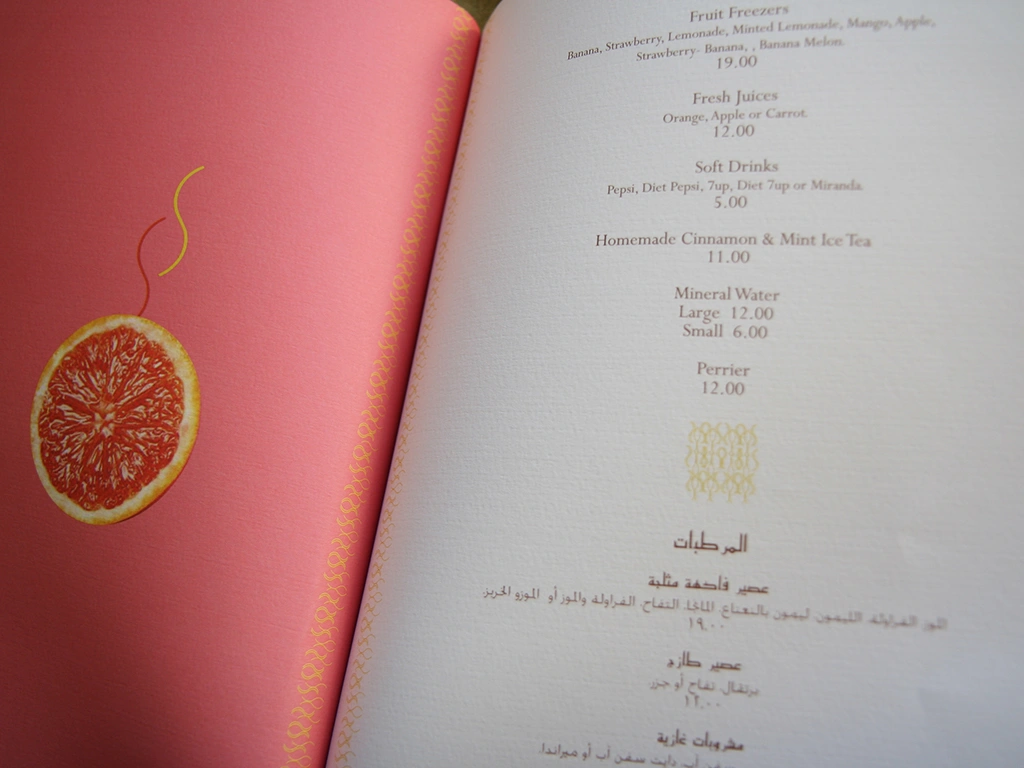 Fruit Freezers
Banana, Strawberry, Lemonade, Minted Lemonade, Mango, Apple,
Strawberry- Banana, , Banana Melon.
19.00
Fresh Juices
Orange, Apple or Carrot.
12.00
Soft Drinks
Pepsi, Diet Pepsi, 7up, Diet 7up or Miranda.
5.00
Homemade Cinnamon & Mint Ice Tea
11.00
Mineral Water
Large 12.00
Small 6.00
Perrier
12.00
المرطبات
عصير فاكهة مثلجة
الموز الفراولة، الليمون، ليمون بالنعناع، المانجا، التفاح، الفراولة والموز أو الموزو الخربز.
١٩.٠٠
عصير طازج
برتقال، تفاح أو جزر.
١٢.٠٠
مشروبات غازية
سفن أب، دايت سفن أب أو ميراندا.